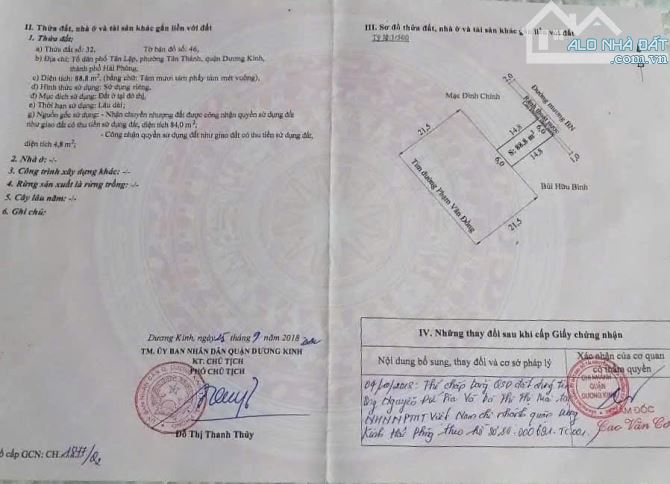 II. Thửa đất, nhà ở và tài sản khác gắn liền với đất
1. Thửa đất:
a) Thửa đất số: 32, Tờ bản đồ số: 46,
b) Địa chỉ: Tổ dân phố Tân Lập, phường Tân Thành, quận Dương Kinh,
thành phố Hải Phòng,
c) Diện tích: 88,8 m², (bằng chữ: Tám mươi tám phẩy tám mét vuông),
d) Hình thức sử dụng: Sử dụng riêng,
đ) Mục đích sử dụng: Đất ở tại đô thị,
e) Thời hạn sử dụng: Lâu dài;
g) Nguồn gốc sử dụng: - Nhận chuyển nhượng đất được công nhận quyền sử dụng đất
như giao đất có thu tiền sử dụng đất, diện tích 84,0 m²;
- Công nhận quyền sử dụng đất như giao đất có thu tiền sử dụng đất,
diện tích 4,8 m²;
2. Nhà ở: -/-
3. Công trình xây dựng khác: -/-
4. Rừng sản xuất là rừng trồng: -/-
5. Cây lâu năm: -/-
6. Ghi chú:
Dương Kinh, ngày 25 tháng 9 năm 2018
TM. ỦY BAN NHÂN DÂN QUẬN DƯƠNG KINH
KT. CHỦ TỊCH
PHÓ CHỦ TỊCH
Đỗ Thị Thanh Thủy
cấp GCN: CH.
III. Sơ đồ thửa đất, nhà ở và tài sản khác gắn liền với đất
Tỷ lệ: 1/500
ALO NHÀ ĐẤT
Mạc Đình Chinh
2,0
Đường mương BN
Rãnh thoát nước
21,5
14,8
6,0
S: 88.8 m²
1,0
6,0
14,8
Tim đường Phạm Văn Đồng
Bùi Hữu Bình
21,5
IV. Những thay đổi sau khi cấp Giấy chứng nhận
Nội dung bổ sung, thay đổi và cơ sở pháp lý
Xác nhận của cơ quan
có thẩm quyền
2018: Thế chấp bằng QSD đất
Nguyễn
NHNN PTNT Việt Nam chi nhánh quận Dương
Kinh Hải Phòng theo hồ sơ số
CHI NHÁNH
QUẬN
DƯƠNG KINH
GIÁM ĐỐC
Cao Văn